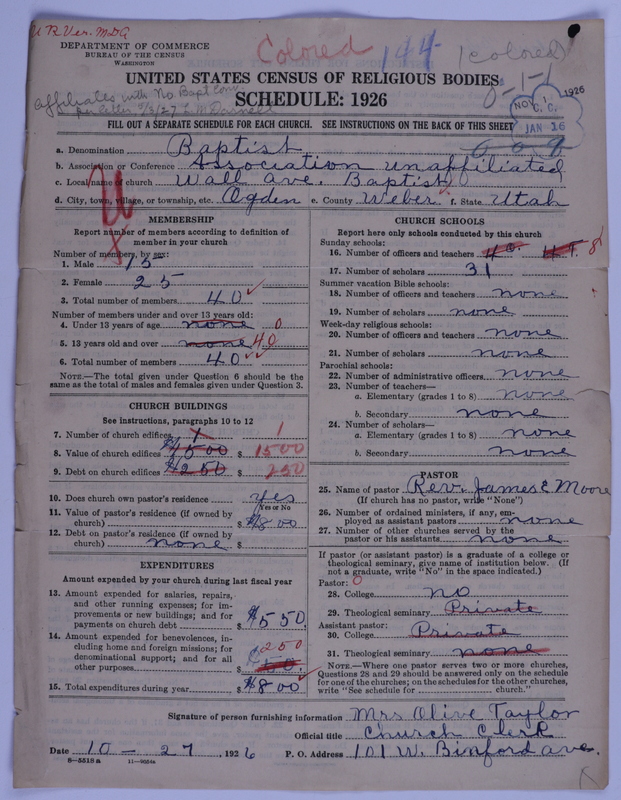 U B Ver. MDG
DEPARTMENT OF COMMERCE
BUREAU OF THE CENSUS
WASHINGTON
Colored 144 (colored)
UNITED STATES CENSUS OF RELIGIOUS BODIES
SCHEDULE: 1926
affiliates with No Bapt Conv
per letter
NOV. 1 1926
C. C.
JAN 26
FILL OUT A SEPARATE SCHEDULE FOR EACH CHURCH. SEE INSTRUCTIONS ON THE BACK OF THIS SHEET
a. Denomination Baptist
b. Association or Conference Association unaffiliated
c. Local name of church Wall Ave. Baptist
d. City, town, village, or township, etc. Ogden e. County Weber f. State Utah
MEMBERSHIP
Report number of members according to definition of
member in your church
Number of members, by sex:
1. Male 15
2. Female 25
3. Total number of members 40
Number of members under and over 13 years old:
4. Under 13 years of age none 0
5. 13 years old and over none 40
6. Total number of members 40
NOTE.—The total given under Question 6 should be the
same as the total of males and females given under Question 3.
CHURCH BUILDINGS
See instructions, paragraphs 10 to 12
7. Number of church edifices 1 1
8. Value of church edifices $1500 $ 1500
9. Debt on church edifices $250 $ 250
10. Does church own pastor's residence yes
Yes or No
11. Value of pastor's residence (if owned by
church) $ $800
12. Debt on pastor's residence (if owned by
church) none $
EXPENDITURES
Amount expended by your church during last fiscal year
13. Amount expended for salaries, repairs,
and other running expenses; for im-
provements or new buildings; and for
payments on church debt $ $550
14. Amount expended for benevolences, in-
cluding home and foreign missions; for
denominational support; and for all
other purposes $ 250
15. Total expenditures during year $ $800
CHURCH SCHOOLS
Report here only schools conducted by this church
Sunday schools:
16. Number of officers and teachers 8
17. Number of scholars 31
Summer vacation Bible schools:
18. Number of officers and teachers none
19. Number of scholars none
Week-day religious schools:
20. Number of officers and teachers none
21. Number of scholars none
Parochial schools:
22. Number of administrative officers none
23. Number of teachers—
a. Elementary (grades 1 to 8) none
b. Secondary none
24. Number of scholars—
a. Elementary (grades 1 to 8) none
b. Secondary none
PASTOR
25. Name of pastor Rev. James E Moore
(If church has no pastor, write "None")
26. Number of ordained ministers, if any, em-
ployed as assistant pastors none
27. Number of other churches served by the
pastor or his assistants none
If pastor (or assistant pastor) is a graduate of a college or
theological seminary, give name of institution below. (If
not a graduate, write "No" in the space indicated.)
Pastor: 0
28. College no
29. Theological seminary Private
Assistant pastor:
30. College Private
31. Theological seminary none
NOTE.—Where one pastor serves two or more churches,
Questions 28 and 29 should be answered only on the schedule
for one of the churches; on the schedules for the other churches,
write "See schedule for church."
Signature of person furnishing information Mrs Olive Taylor
Official title Church Clerk
Date 10 – 27, 1926 P. O. Address 101 W. Binford ave.
8—5518 a 11—9034a